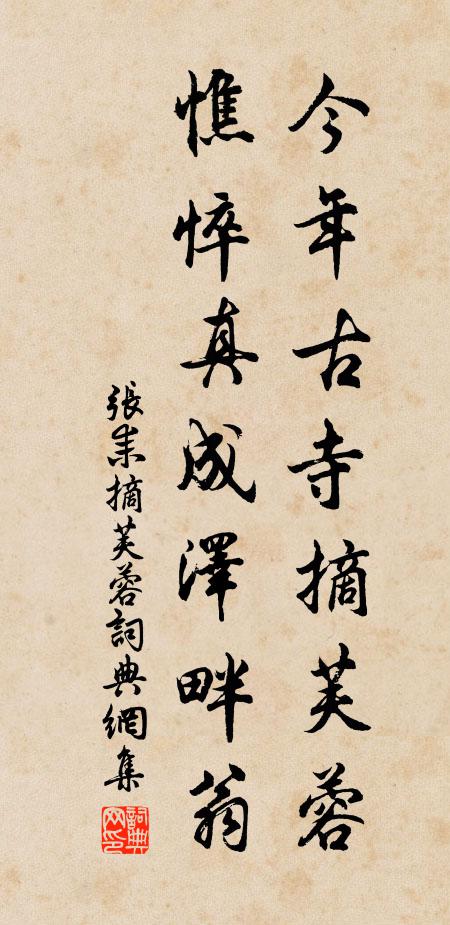 今年古寺摘芙蓉
憔悴真成澤畔翁
張耒摘芙蓉詞典網集
詞典網印